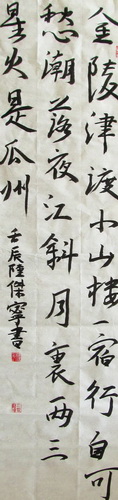 金陵津渡小山楼一宿行自可
愁潮落夜江斜月裏两三
星火是瓜州
壬辰陸傑寧書